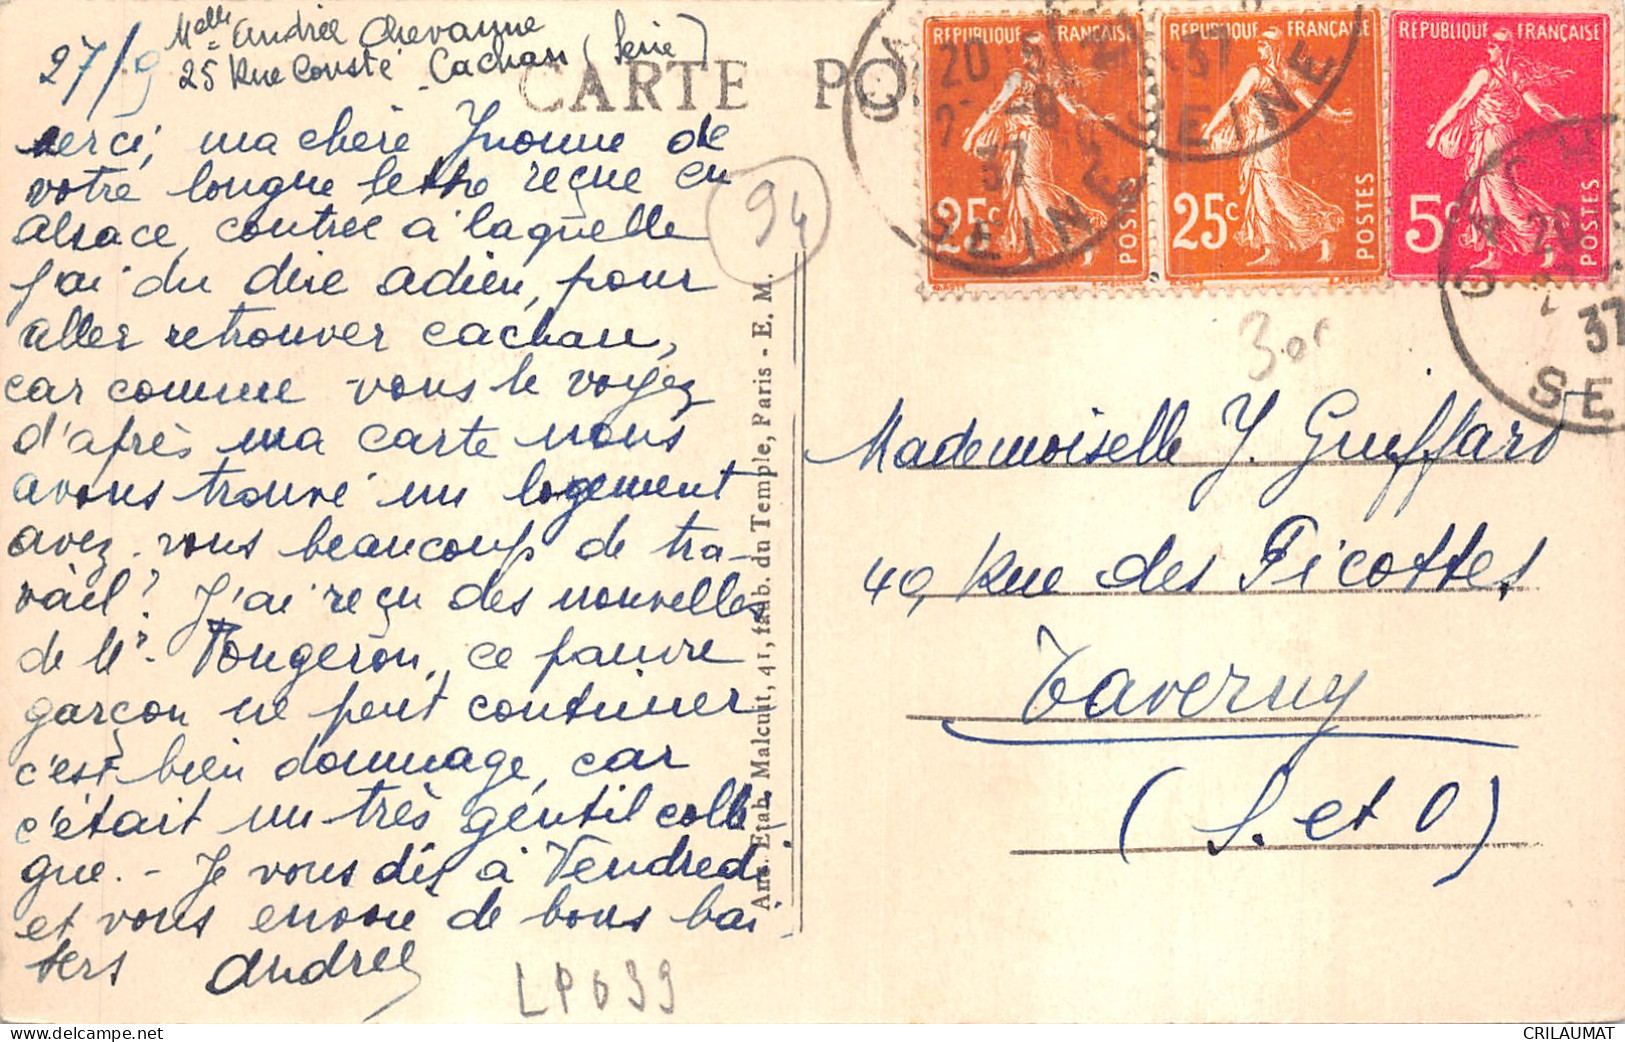 27/9
Melle Andrée Chevanne
25 Rue Cousté Cachan (Seine)
CARTE PO
merci, ma chère Yvonne de
votre longue lettre reçue en
alsace, contrée à laquelle
j'ai du dire adieu, pour
aller retrouver cachan,
car comme vous le voyez
d'après ma carte nous
avons trouvé un logement
avez-vous beaucoup de tra-
vail? J'ai reçu des nouvelles
de Mr. Fougeron, ce pauvre
garçon ne peut continuer
c'est bien dommage, car
c'était un très gentil collè-
gue. - Je vous dis à Vendredi
et vous envoie de bons bai-
sers Andrée
94
LP639
Anc. Etab. Malcuit, 41, faub. du Temple, Paris - E. M.
RÉPUBLIQUE FRANÇAISE
25c
POSTES
RÉPUBLIQUE FRANÇAISE
25c
POSTES
RÉPUBLIQUE FRANÇAISE
5c
POSTES
20
37
SEINE
37
SEINE
20
37
SE
Mademoiselle Y. Guiffard
40, Rue des Picottes,
Taverny
(S. et O)
CRILAUMAT